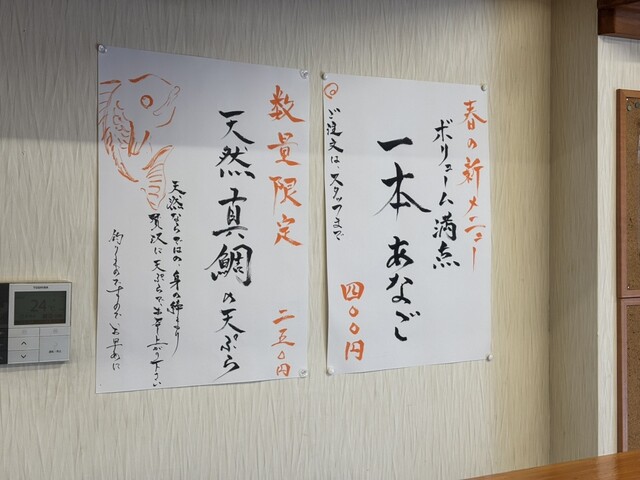 春の新メニュー
ボリューム満点
一本あなご
四〇〇円
ご注文は、スタッフまで
数量限定
天然真鯛の天ぷら
二五〇円
天然ならではの、身の締まり
贅沢に天ぷらで、お召し上がり下さい
釣りものですので、お早めに
TOSHIBA
24